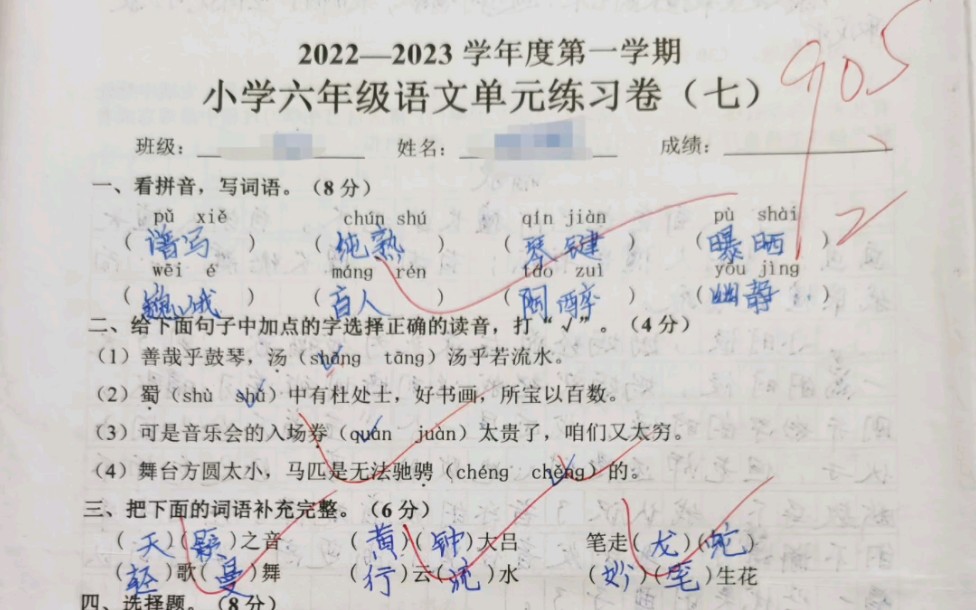 2022—2023 学年度第一学期
小学六年级语文单元练习卷（七）
905
2
班级： 姓名： 成绩：
一、看拼音，写词语。（8 分）
pǔ xiě chún shú qín jiàn pù shài
（谱写） （纯熟） （琴键） （曝晒）
wēi é máng rén táo zuì yōu jìng
（巍峨） （盲人） （陶醉） （幽静）
二、给下面句子中加点的字选择正确的读音，打“√”。（4 分）
（1）善哉乎鼓琴，汤（shāng tāng）汤乎若流水。
（2）蜀（shù shǔ）中有杜处士，好书画，所宝以百数。
（3）可是音乐会的入场券（quàn juàn）太贵了，咱们又太穷。
（4）舞台方圆太小，马匹是无法驰骋（chéng chěng）的。
三、把下面的词语补充完整。（6 分）
（天）（籁）之音 （黄）（钟）大吕 笔走（龙）（蛇）
（轻）歌（曼）舞 （行）云（流）水 （妙）（笔）生花
四、选择题。（8 分）